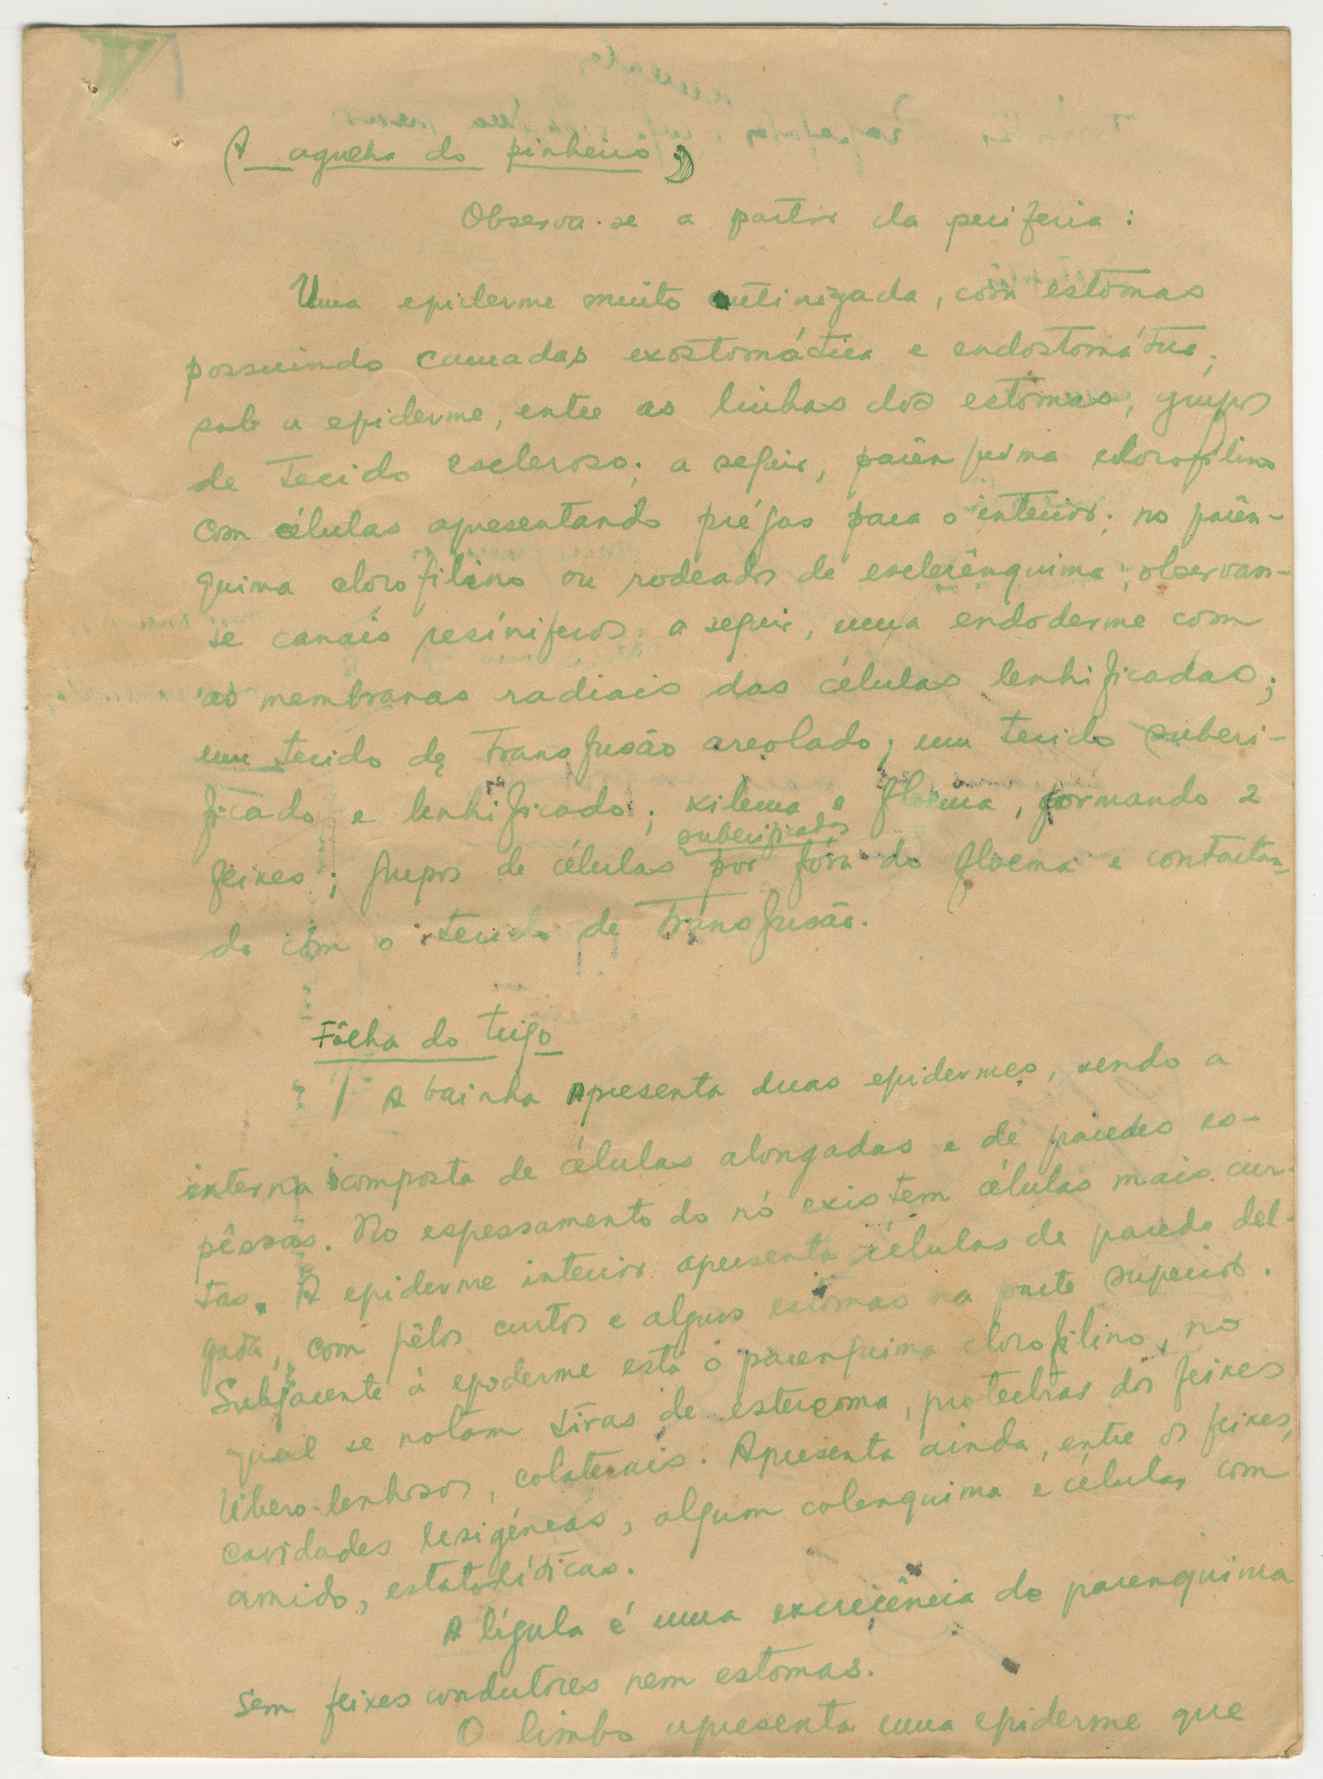 (A agulha do pinheiro)
Observa-se a partir da periferia:
Uma epiderme muito cutinizada, com estomas
possuindo camadas exostomática e endostomática;
sob a epiderme, entre as linhas dos estomas, grupos
de tecido escleroso; a seguir, parênquima clorofilino
com células apresentando prégas para o interior; no parên-
quima clorofilino ou rodeados de esclerênquima, observam-
se canais resiníferos; a seguir, uma endoderme com
as membranas radiais das células lenhificadas;
um tecido de transfusão areolado; um tecido suberi-
ficado e lenhificado; xilema e floema, formando 2
feixes; grupos de células suberificadas por fóra do floema e contactan-
do com o tecido de transfusão.
Fôlha do trigo
A bainha apresenta duas epidermes, sendo a
interna composta de células alongadas e de paredes es-
pêssas. No espessamento do nó existem células mais cur-
tas. A epiderme interior apresenta células de parede del-
gada, com pêlos curtos e alguns estomas na parte superior.
Subjacente à epoderme está o parenquima clorofilino, no
qual se notam tiras de estereoma, protectras dos feixes
líbero-lenhosos, colaterais. Apresenta ainda, entre os feixes,
cavidades lesigéneas, algum colenquima e células com
amido, estatolíticas.
A lígula é uma excrecência do parenquima
sem feixes condutores nem estomas.
O limbo apresenta uma epiderme que